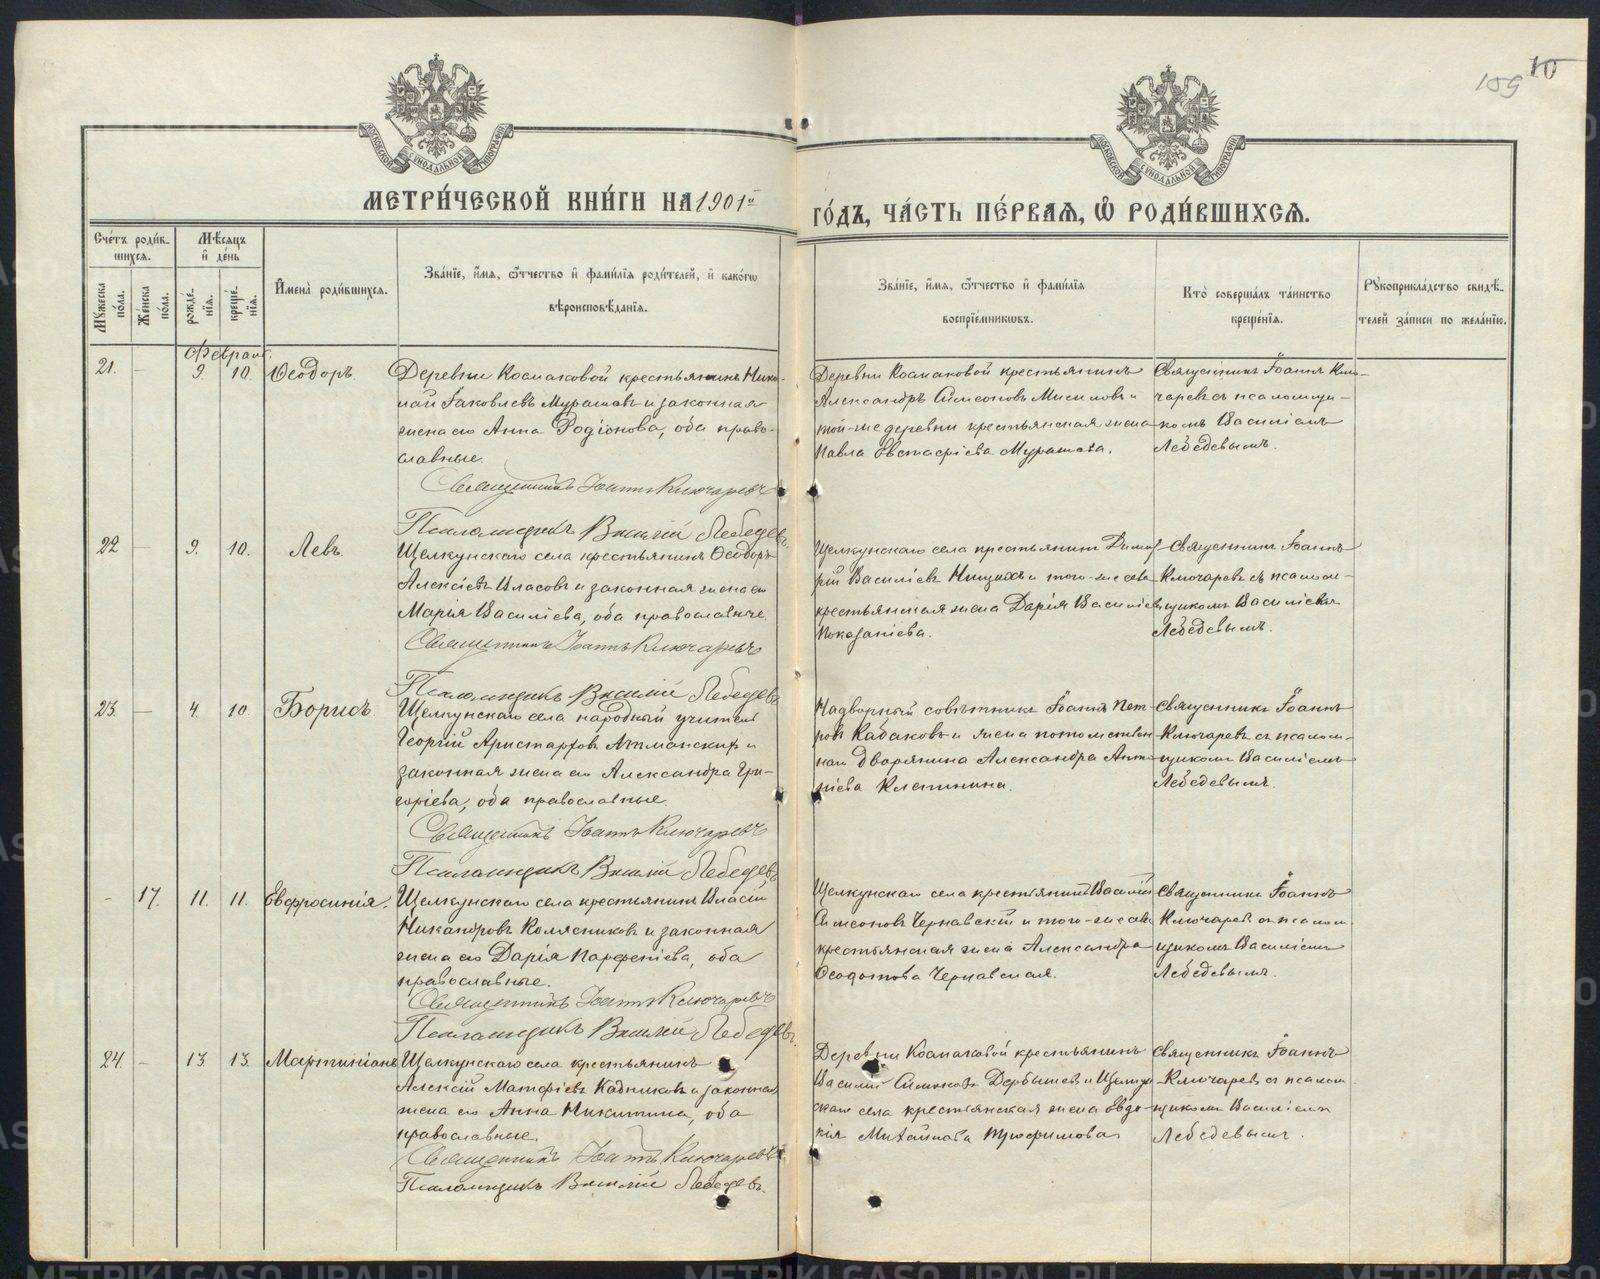 159 10
МОСКОВСКОЙ СѴНОДАЛЬНОЙ ТИПОГРАФІИ
МОСКОВСКОЙ СѴНОДАЛЬНОЙ ТИПОГРАФІИ
МЕТРИ́ЧЕСКОЙ КНИ́ГИ НА 1901й
ГО́ДЪ, ЧА́СТЬ ПЕ́РВАЯ, Ѽ РОДИ́ВШИХСЯ.
Сче́тъ роди́вшихся.
Му́жеска по́ла.
Же́нска по́ла.
Мѣ́сяцъ и де́нь
рожде́нїя.
креще́нїя.
Имена̀ роди́вшихся.
Зва́нїе, и́мя, ѻ́тчество и фами́лїя роди́телей, и како́гѡ
вѣроисповѣ́данїя.
Зва́нїе, и́мя, ѻ́тчество и фами́лїя
воспрїе́мникѡвъ.
Кто̀ соверша́лъ та́инство
креще́нїя.
Рукоприкла́дство свидѣ́-
телей за́писи по жела́нїю.
Февраль.
21. — 9. 10. Ѳеодоръ.
Деревни Космаковой крестьянинъ Нико-
лай Іаковлевъ Мурашовъ и законная
жена его Анна Родіонова, оба право-
славные.
Священникъ Іоаннъ Ключаревъ
Псаломщикъ Василій Лебедевъ.
Деревни Космаковой крестьянинъ
Александръ Симеоновъ и
той-же деревни крестьянская жена
Павла Евстафіева Мурашова.
Священникъ Іоаннъ Клю-
чаревъ съ псаломщи-
комъ Василіемъ
Лебедевымъ.
22 — 9. 10. Левъ.
Щелкунскаго села крестьянинъ Ѳеодоръ
Алексіевъ Власовъ и законная жена его
Марія Василіева, оба православные.
Священникъ Іоаннъ Ключаревъ
Псаломщикъ Василій Лебедевъ
Щелкунскаго села крестьянинъ Димит-
рій Василіевъ и того-же села
крестьянская жена Дарія Василіева
Священникъ Іоаннъ
Ключаревъ съ псалом-
щикомъ Василіемъ
Лебедевымъ.
23. — 4. 10. Борисъ
Щелкунскаго села народный учитель
Георгій Аристарховъ и
законная жена его Александра Гри-
горіева, оба православные.
Священникъ Іоаннъ Ключаревъ
Псаломщикъ Василій Лебедевъ
Надворный совѣтникъ Іоаннъ Пет-
ровъ Кабаковъ и жена потомствен-
наго дворянина Александра
Клепинина.
Священникъ Іоаннъ
Ключаревъ съ псалом-
щикомъ Василіемъ
Лебедевымъ.
- 17. 11. 11. Евфросинія.
Щелкунскаго села крестьянинъ Власій
Никандровъ Колясниковъ и законная
жена его Дарія Парфеніева, оба
православные.
Священникъ Іоаннъ Ключаревъ
Псаломщикъ Василій Лебедевъ.
Щелкунскаго села крестьянинъ Василій
Симеоновъ Чернавскій и того-же села
крестьянская жена Александра
Ѳеодотова Чернавская.
Священникъ Іоаннъ
Ключаревъ съ псалом-
щикомъ Василіемъ
Лебедевымъ.
24. — 13. 13. Мартиніанъ
Щелкунскаго села крестьянинъ
Алексій Матфіевъ Кадниковъ и законная
жена его Анна Никитина, оба
православные.
Священникъ Іоаннъ Ключаревъ
Псаломщикъ Василій Лебедевъ.
Деревни Космаковой крестьянинъ
Василій Симеоновъ Дербышевъ и Щелкун-
скаго села крестьянская жена Евдо-
кія Михаилова Трофимова
Священникъ Іоаннъ
Ключаревъ съ псалом-
щикомъ Василіемъ
Лебедевымъ.
METRIKI.GASO-URAL.RU